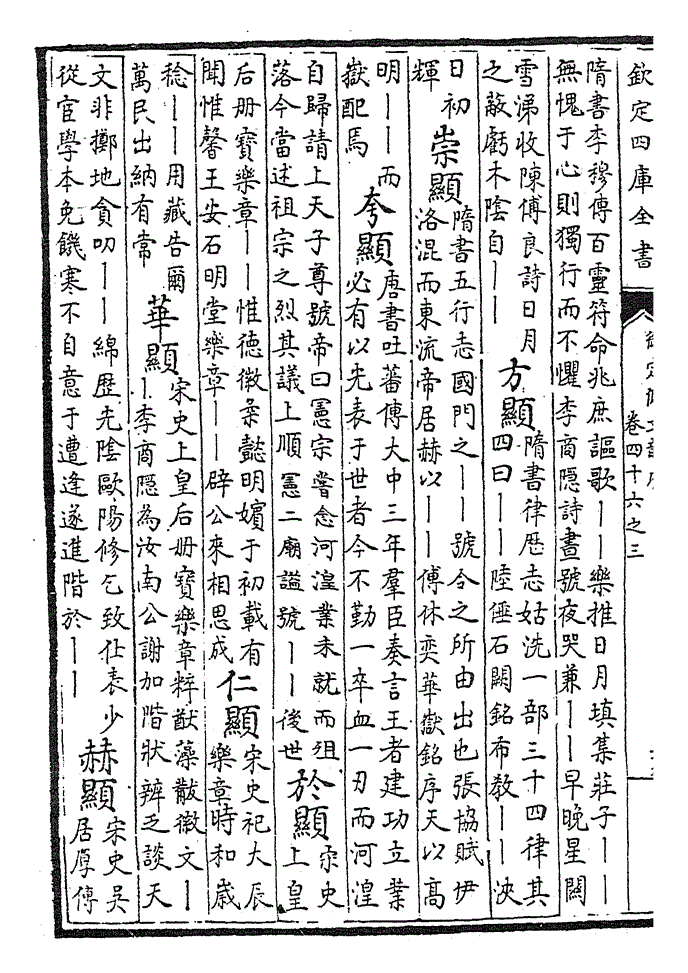 欽定四庫全書
卷四十六之三
隋書李穆傳百靈符命兆庶謳歌——樂推日月填集莊子——
無愧于心則獨行而不懼李商隱詩晝號夜哭兼——早晚星關
雪涕收陳傅良詩日月
之蔽虧木陰自——
方顯
隋書律歷志姑洗一部三十四律其
四曰——陸倕石闕銘布教——浹
日初
輝
崇顯
隋書五行志國門之——號令之所由出也張協賦伊
洛混而東流帝居赫以——傅休奕華嶽銘序天以高
明——而
嶽配焉
夸顯
唐書吐蕃傳大中三年羣臣奏言王者建功立業
必有以光表于世者今不勤一卒血一刃而河湟
自歸請上天子尊號帝曰憲宗嘗念河湟業未就而殂
落今當述祖宗之烈其議上順憲二廟謚號——後世
於顯
宋史
上皇
后册寶樂章——惟德徽柔懿明嬪于初載有
聞惟馨王安石明堂樂章——辟公來相思成
仁顯
宋史祀大辰
樂章時和歲
稔——用藏告爾
萬民出納有常
華顯
宋史上皇后册寶樂章粹猷藻黻徽文—
—李商隱為汝南公謝加階狀辨乏談天
文非擲地貪叨——綿歷光陰歐陽修乞致仕表少
從官學本免饑寒不自意于遭逢遂進階於——
赫顯
宋史吳
居厚傳